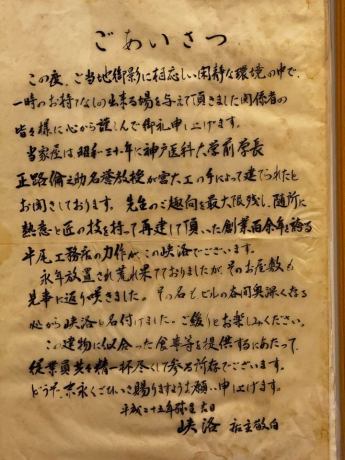 ごあいさつ
この度、ご当地御影に相応しい閑静な環境の中で、
一時のお持てなしの出来る場を与えて頂きました関係者の
皆々様に心から謹しんで御礼申し上げます。
当家屋は昭和三十一年に神戸医科大学前学長
正路倫之助名誉教授が宮大工の手によって建てられたと
お聞きしております。先生のご趣向を最大限残し、随所に
熱意と匠の技を持って再建して頂いた創業百余年を誇る
平尾工務店の力作が、この峡洛でございます。
永年放置され荒れ果てておりましたが、そのお屋敷も
見事に返り咲きました。その名もビルの谷間奥深く在る
処から峡洛と名付けました。ご緩りとお楽しみください。
この建物に似合った食事等を提供するにあたって、
従業員共々精一杯尽くして参る所存でございます。
どうぞ、末永くごひいき賜りますようお願い申し上げます。
平成二十五年 吉日
峡洛 店主敬白